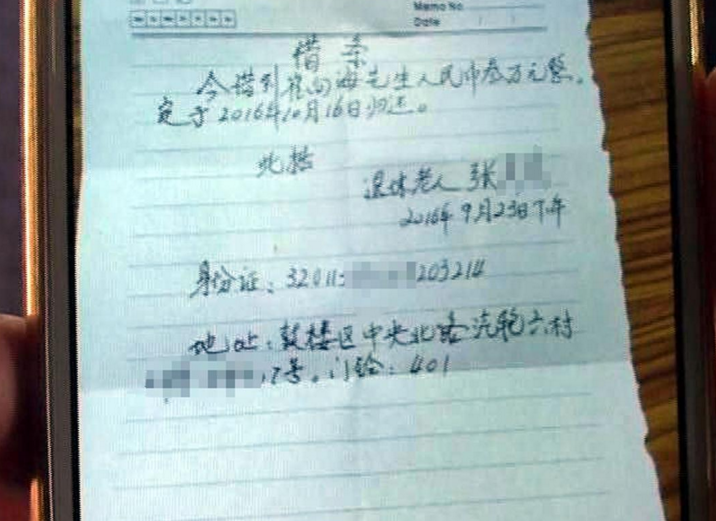 Memo No
Date
借条
今借到崔向海先生人民币叁万元整,
定于2016年10月16日归还。
此据
退休老人 张
2016年9月23日下午
身份证:32011 203214
地址:鼓楼区中央北路汽轮六村
17号,门铃:401